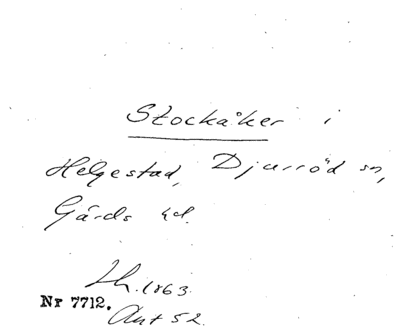 Stockåker i
Helgestad, Djurröd sn,
Gärds hd.
Lh. 1863.
Nr 7712.
Akt 52.